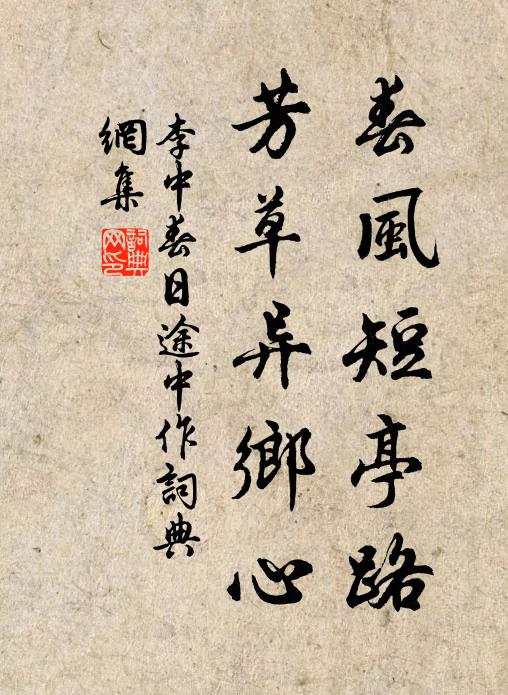 春風短亭路
芳草异鄉心
李中春日途中作詞典
網集
詞典網印